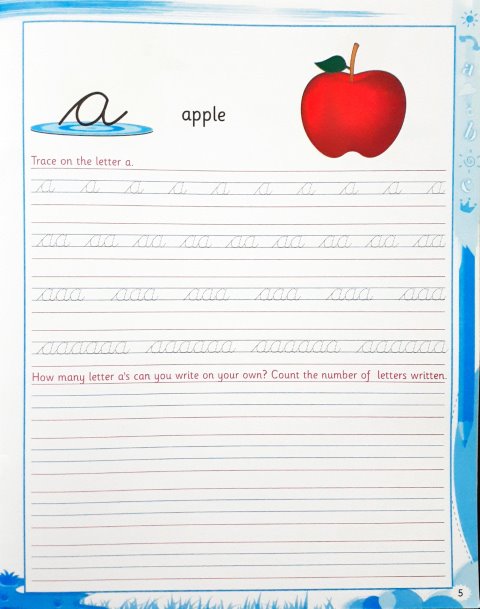 a apple
Trace on the letter a.
a a a a a a a a a a
aa aa aa aa aa aa aa aa aa
aaa aaa aaa aaa aaa aaa
aaaaaa aaaaaa aaaaaa aaaaaa
How many letter a's can you write on your own? Count the number of letters written.
5